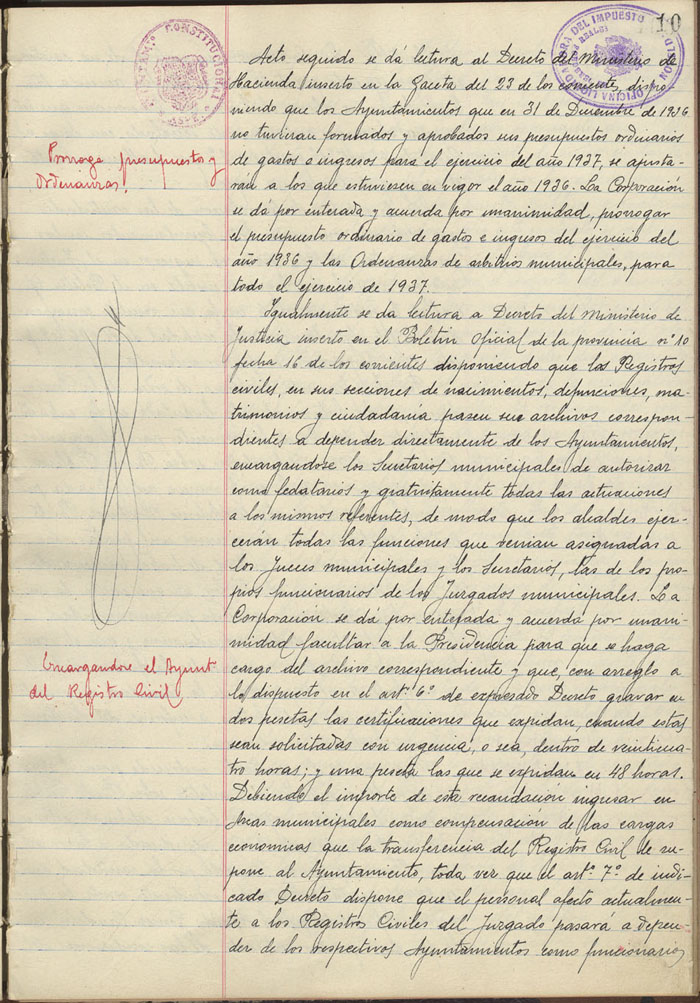 10
AYUNTAM.º CONSTITUCIONAL
OFICINA LIQUIDADORA DEL IMPUESTO
Acto seguido se dá lectura al Decreto del Ministerio de
Hacienda inserto en la Gaceta del 23 de los corriente, dispo-
niendo que los Ayuntamientos que en 31 de Diciembre de 1936
no tuvieran formados y aprobados sus presupuestos ordinarios
de gastos e ingresos para el ejercicio del año 1937, se ajusta-
rán a los que estuviesen en vigor el año 1936. La Corporación
se dá por enterada y acuerda por unanimidad, prorrogar
el presupuesto ordinario de gastos e ingresos del ejercicio del
año 1936 y las Ordenanzas de arbitrios municipales, para
todo el ejercicio de 1937.
Prorroga presupuestos y
Ordenanzas.
Igualmente se da lectura a Decreto del Ministerio de
Justicia inserto en el Boletin Oficial de la provincia nº 10
fecha 16 de los corrientes disponiendo que las Registros
civiles, en sus secciones de nacimientos, defunciones, ma-
trimonios y ciudadania pasen sus archivos correspon-
dientes a depender directamente de los Ayuntamientos,
encargandose los Secretarios municipales de autorizar
como fedatarios y gratuitamente todas las actuaciones
a los mismos referentes, de modo que los alcaldes ejer-
cerán todas las funciones que venian asignadas a
los Jueces municipales y los Secretarios, las de los pro-
pios funcionarios de los Juzgados municipales. La
Corporación se dá por enterada y acuerda por unani-
midad facultar a la Presidencia para que se haga
cargo del archivo correspondiente y que, con arreglo a
lo dispuesto en el artº 6º de expresado Decreto gravar en
dos pesetas las certificaciones que expidan, cuando estas
sean solicitadas con urgencia, o sea, dentro de veinticua-
tro horas; y una peseta las que se expidan en 48 horas.
Debiendo el importe de esta recaudación ingresar en
Arcas municipales como compensación de las cargas
economicas que la transferencia del Registro Civil de su-
pone al Ayuntamiento, toda vez que el artº 7º de indi-
cado Decreto dispone que el personal afecto actualmen-
te a los Registros Civiles del Juzgado pasará a depen-
der de los respectivos Ayuntamientos como funcionarios
Encargandose el Ayunt.
del Registro Civil